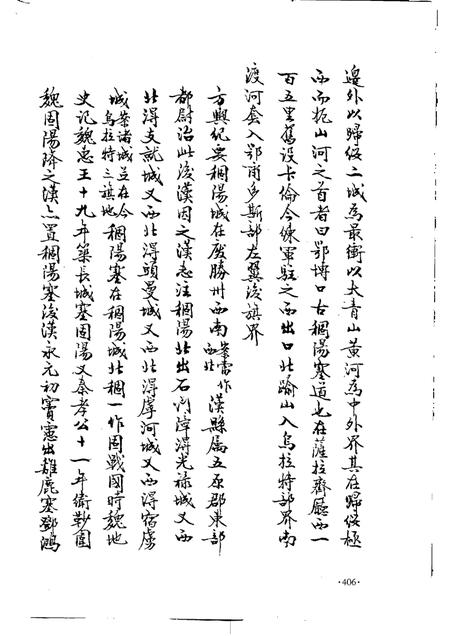 邊外以歸綏二城為最衝以大青山黃河為中外界其在歸綏極
西而扼山河之首者曰鄂博口古稒陽塞道也在薩拉齊廳西一
百五里舊設卡倫今練軍駐之西出口北踰山入烏拉特部界南
渡河套入鄂爾多斯部左翼後旗界
方輿紀要稒陽城在廢勝州西南案當作西北漢縣屬五原郡東部
都尉治此後漢因之漢志注稒陽北出石門障得光祿城又西
北得支就城又西北得頭曼城又西北得虖河城又西得宿虜
城案諸城並在今烏拉特三旗地稒陽塞在稒陽城北稒一作固戰國時魏地
史記魏惠王十九年築長城塞固陽又秦孝公十一年衛鞅圍
魏固陽降之漢亦置稒陽塞後漢永元初竇憲出雞鹿塞鄧鴻
·406·